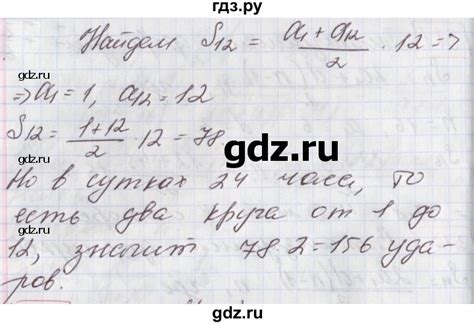 гдз.ру
Найдем S12 = a1 + a12 / 2 · 12 =>
=> a1 = 1, a12 = 12
S12 = 1+12 / 2 · 12 = 78
gdz.ru
gdz.ru
Но в сутках 24 часа, то
есть два круга от 1 до
12, значит 78·2=156 уда-
ров.
gdz.ru
gdz.ru
гдз.ру